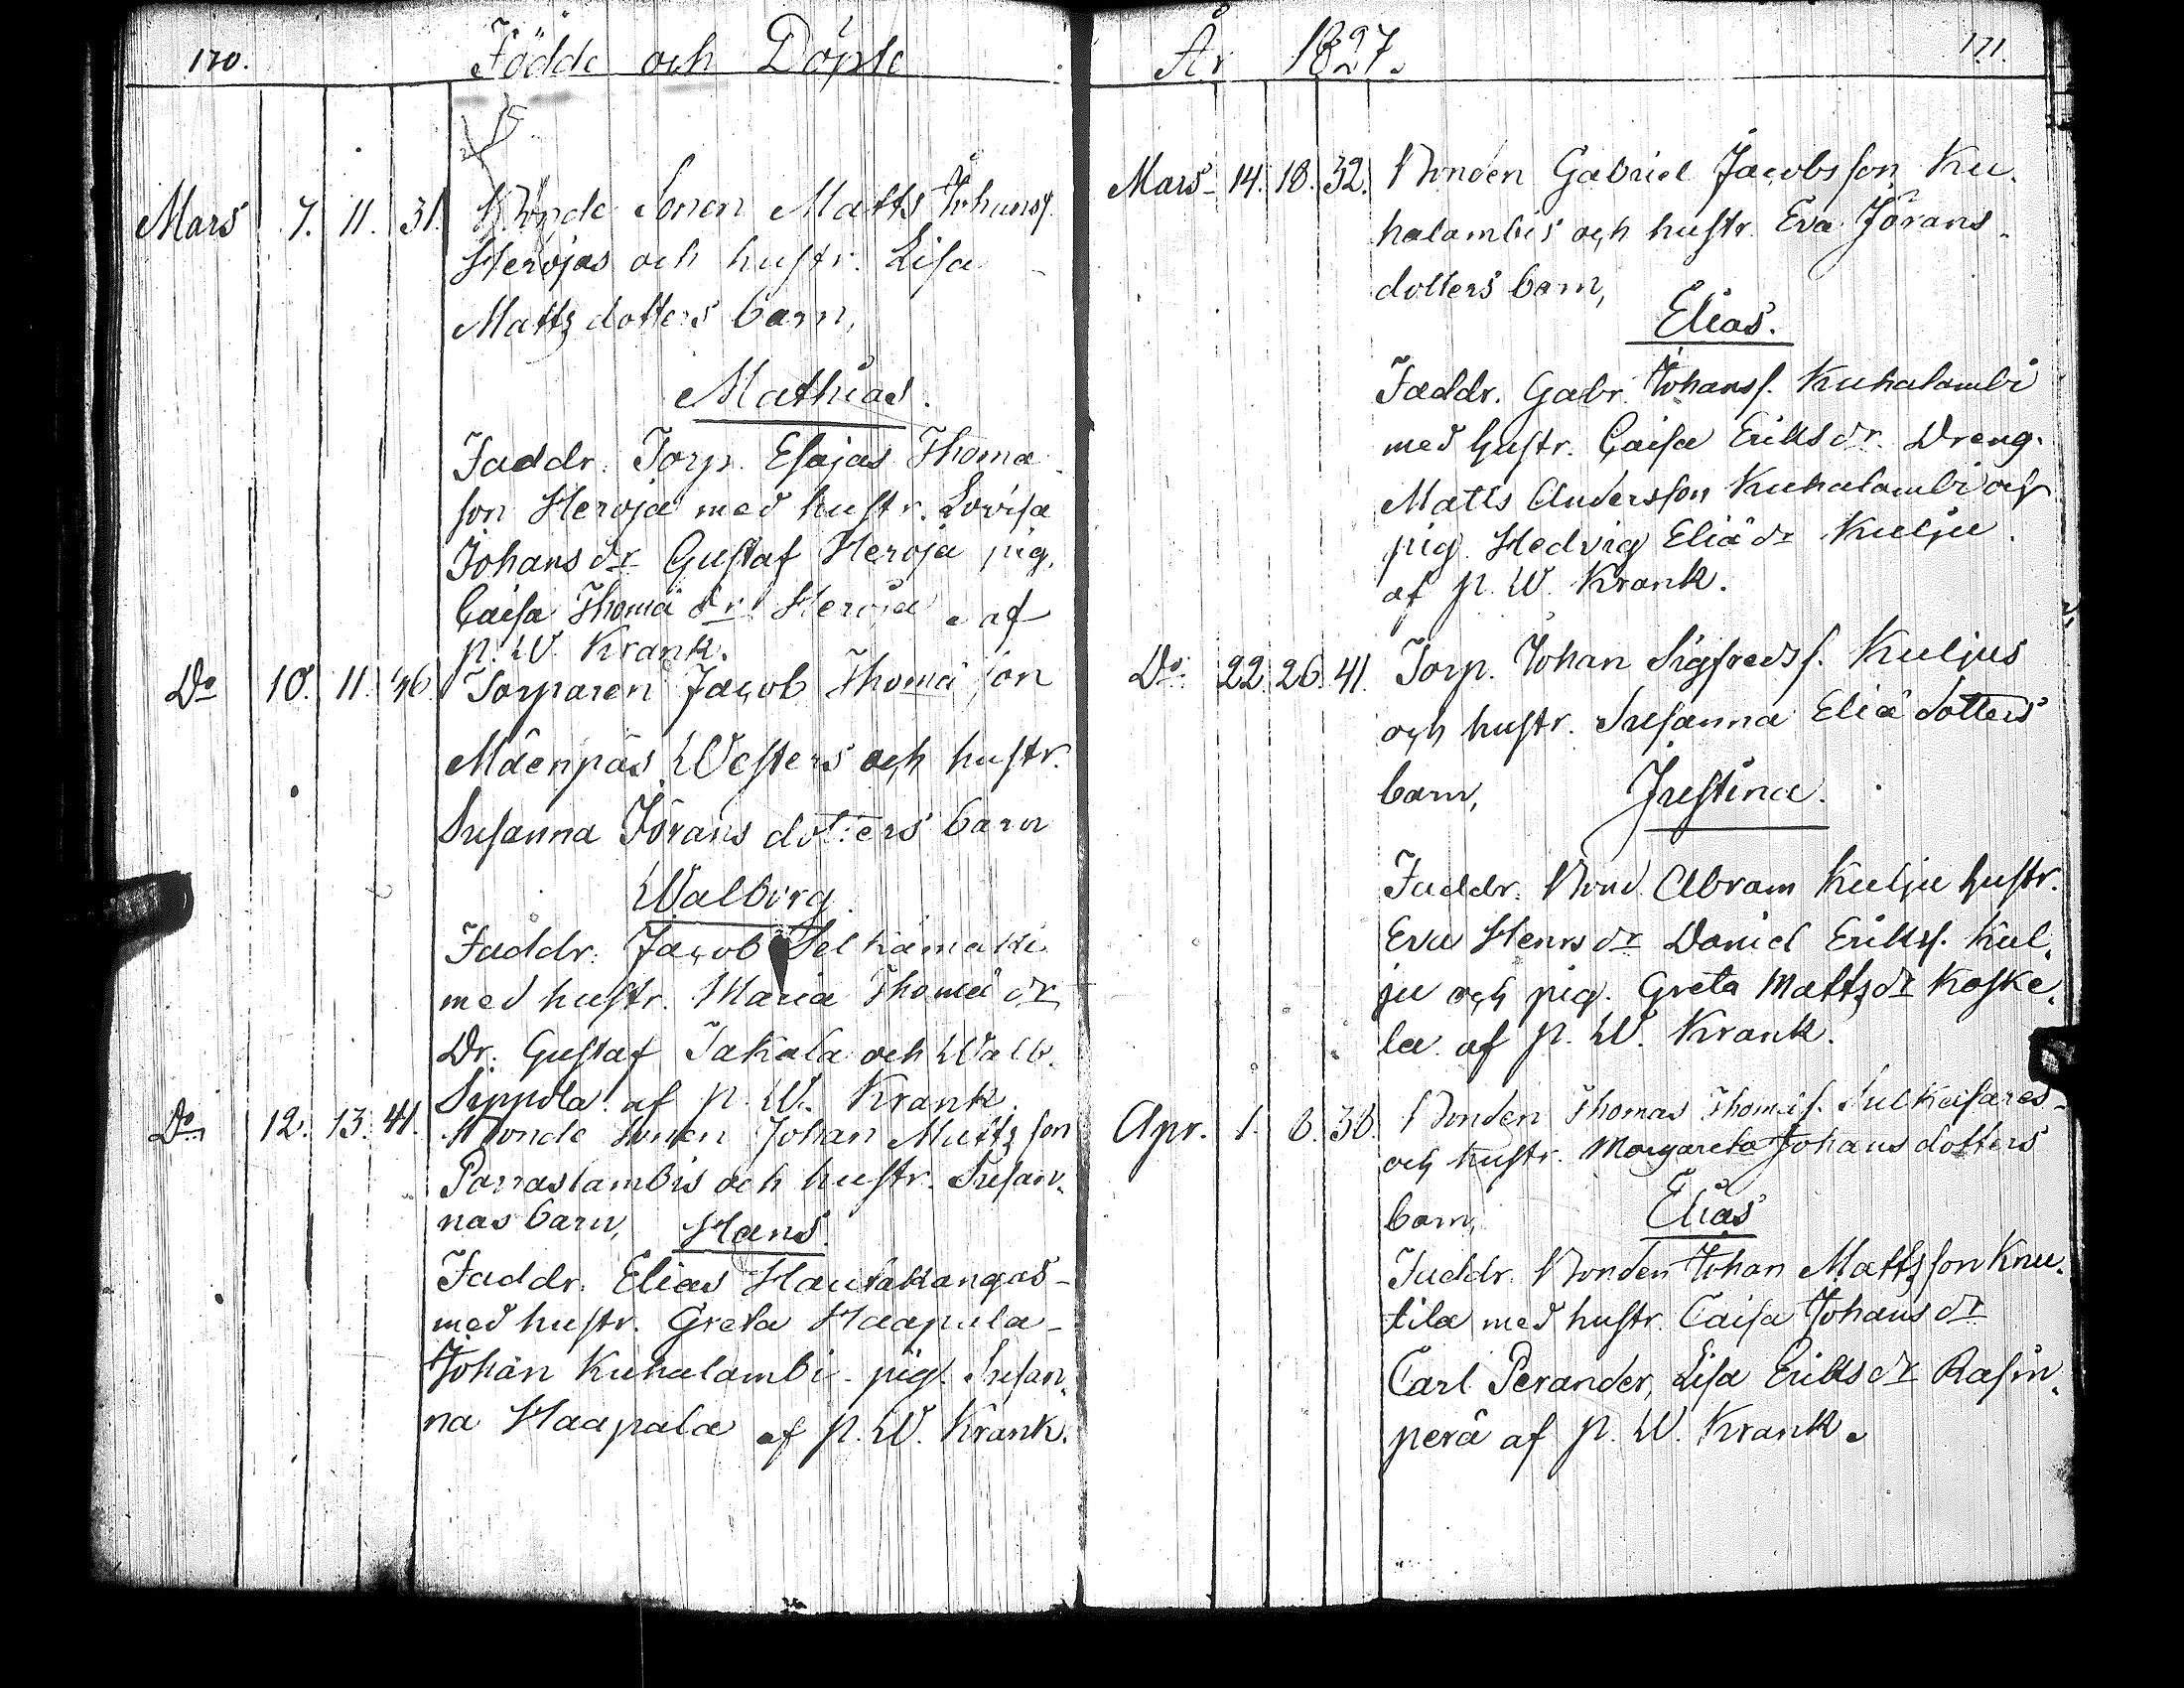 170.
Födde och Döpte
Mars 7. 11. 31. Bonde Sonen Matts Johanss.
Herojas och hustr. Lisa
Mattsdotters barn,
Mathias.
Faddr. Torp. Esajas Thoma
son Heroja med hustr. Lovisa
Johans dr Gustaf Heroja pig.
Caisa Thomä dr Heroja af
p. W. Krank.
Do 10. 11. 46. Torparen Jacob Thomä son
Mäenpäs Westers och hustr.
Susanna Jörans dotters barn
Walborg.
Faddr. Jacob Selkämäki
med hustr. Maria Thomä dr
Dr. Gustaf Takala och Walb.
Seppola af p. W. Krank.
Do 12. 13. 41. Bonde sonen Johan Mattsson
Parraslambis och hustr. Susan-
nas barn, Hans.
Faddr. Elias Hautakangas
med hustr. Greta Haapala
Johan Kuhalambi pig. Susan-
na Haapala af p. W. Krank.
År 1827.
171.
Mars 14. 18. 32. Bonden Gabriel Jacobsson Ku-
halambis och hustr. Eva Jörans-
dotters barn,
Elias.
Faddr. Gabr. Johanss. Kuhalambi
med hustr. Caisa Eriks dr. Dreng.
Matts Andersson Kuhalambi och
pig. Hedvig Eliä dr Kulju.
af p. W. Krank.
Do 22. 26. 41. Torp. Johan Sigfredss. Kuljus
och hustr. Susanna Eliä dotters
barn, Justina.
Faddr. Bond. Abram Kulju hustr.
Eva Henrs dr Daniel Erikss. Kul-
ju och pig. Greta Matts dr Koske-
la af p. W. Krank.
Apr. 1. 8. 38. Bonden Thomas Thomäs. Sulkakaisares
och hustr. Margareta Johans dotters
barn, Elias
Faddr. Bonden Johan Mattsson Knu-
tila med hustr. Caisa Johans dr
Carl Perander, Lisa Eriks dr Rasin-
perä af p. W. Krank.